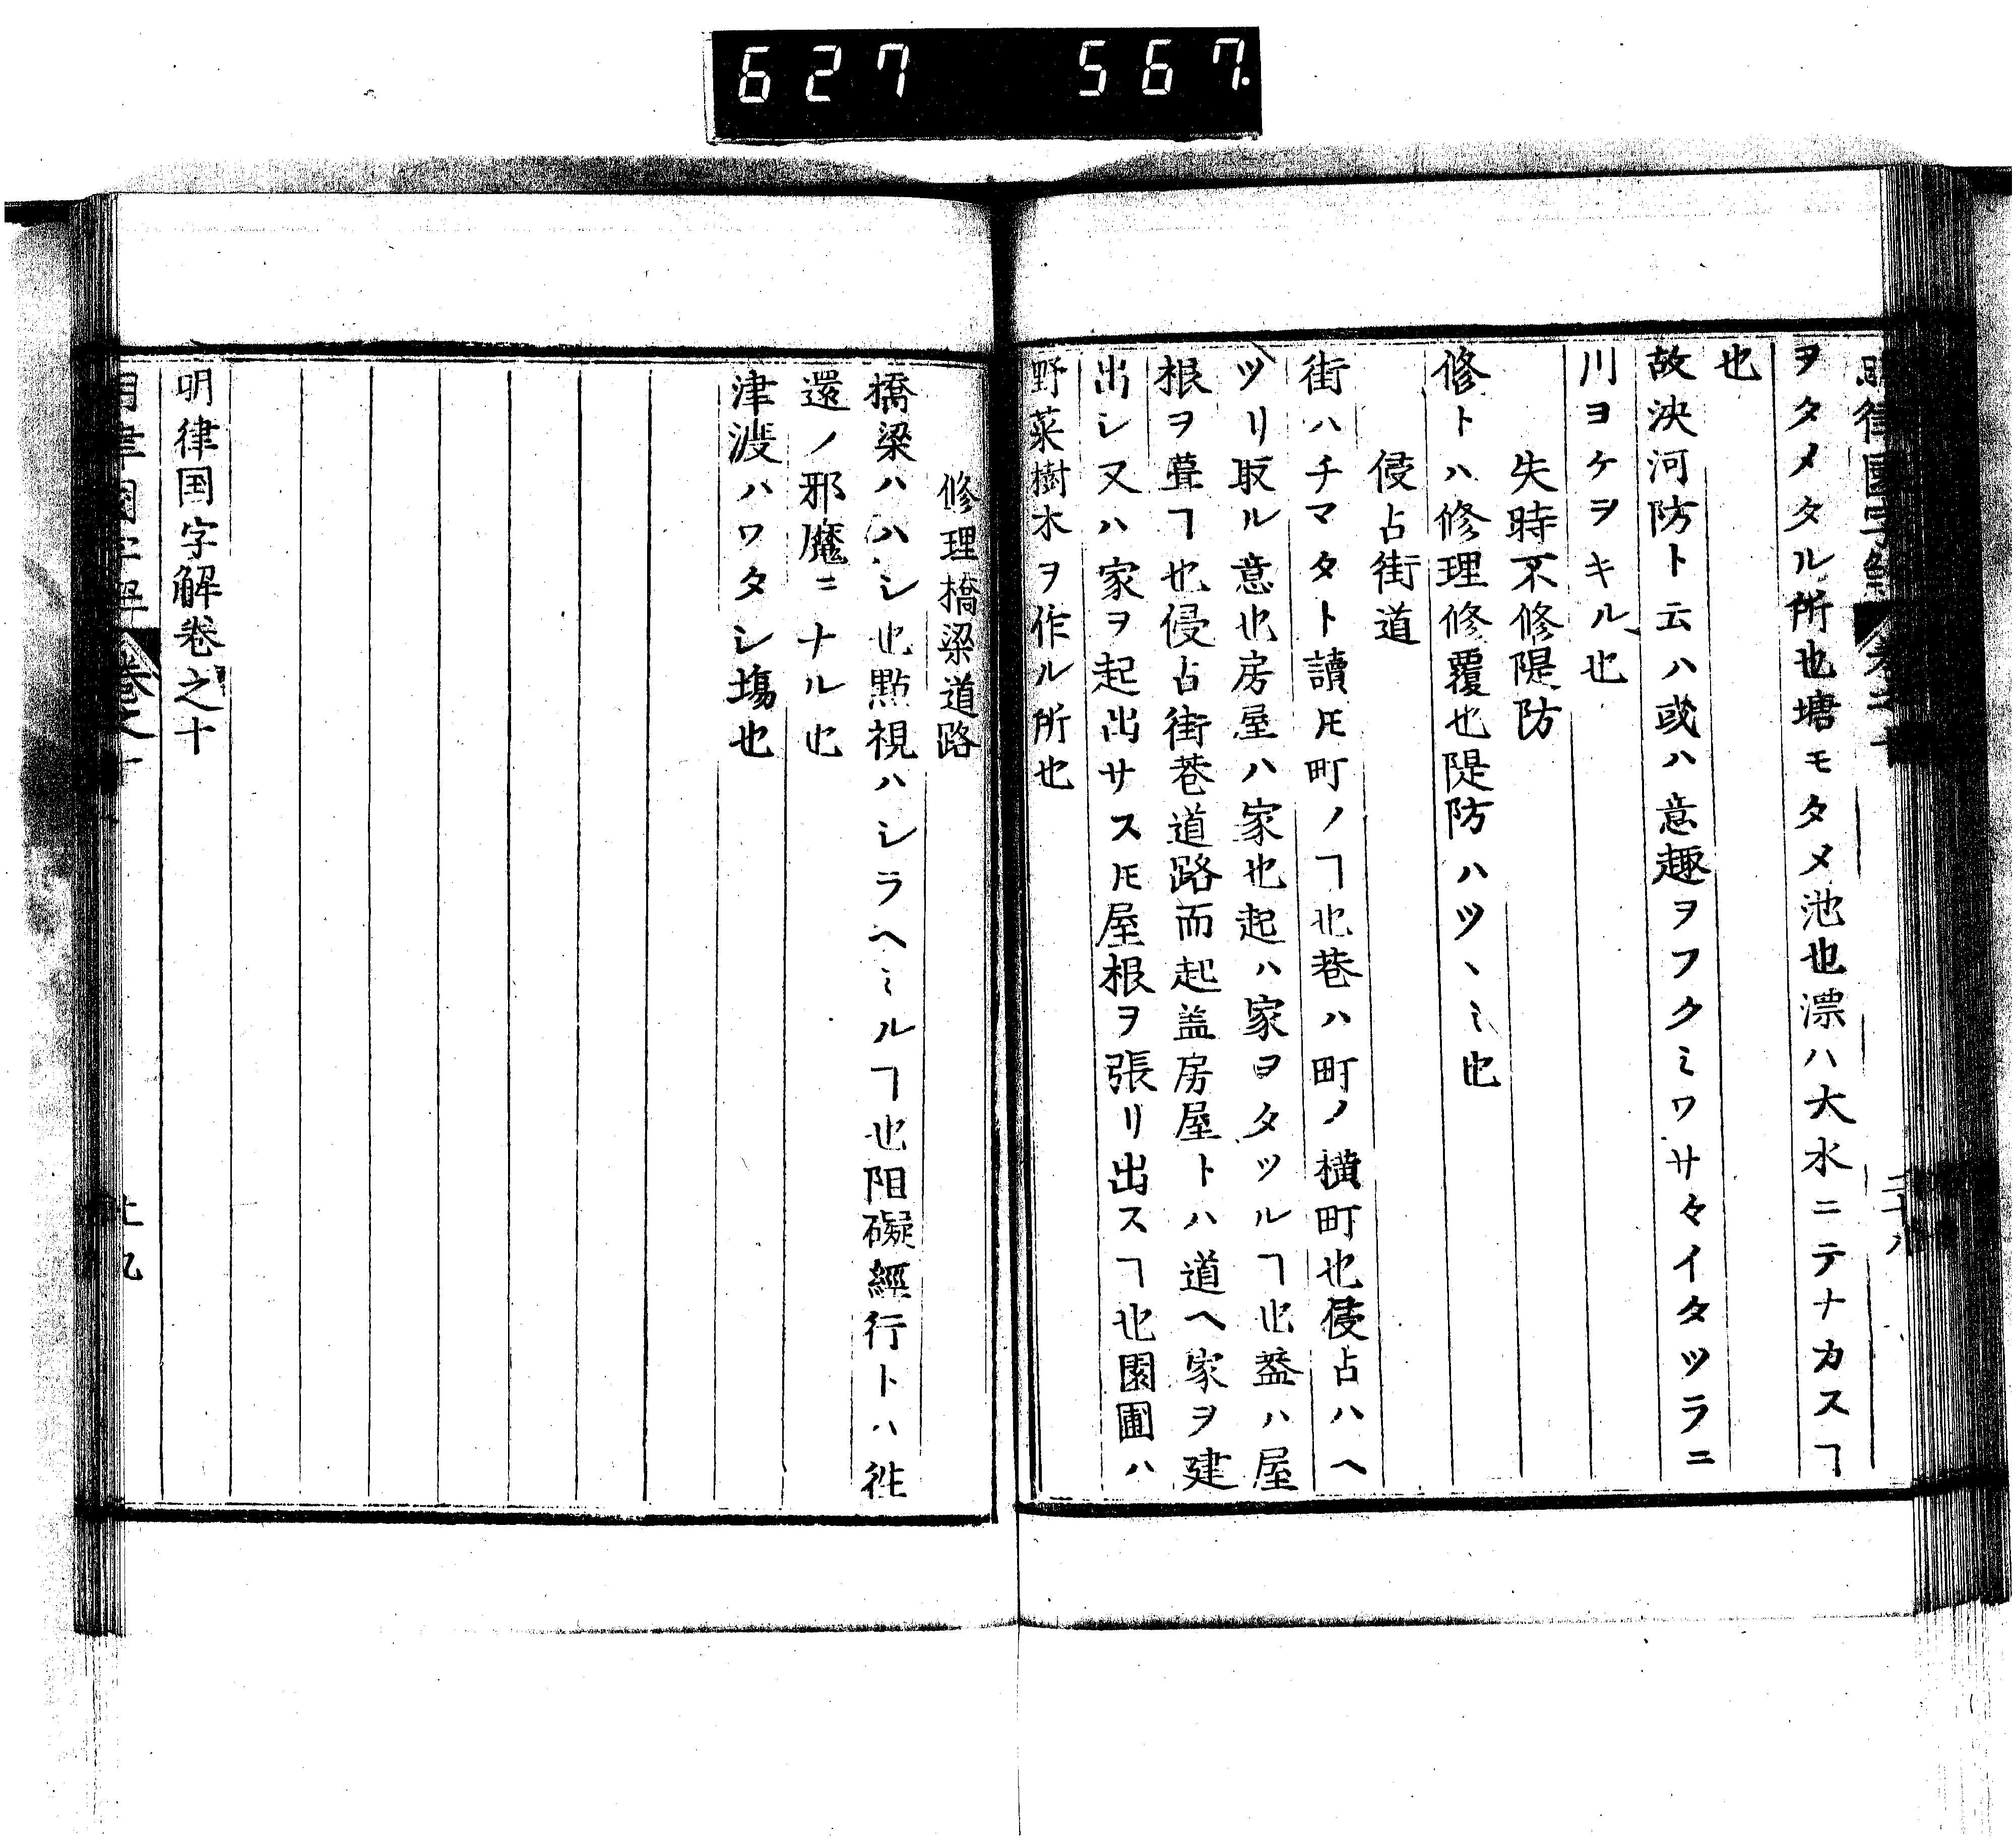 627 567.
明律國字解 卷之十 二十八
ヲタメタル所也塘モタメ池也漂ハ大水ニテナカスヿ
也
故決河防ト云ハ或ハ意趣ヲフクミワサ々イタツラニ
川ヨケヲキル也
失時不修隄防
修トハ修理修覆也隄防ハツヽミ也
侵占街道
街ハチマタト讀𪜈町ノヿ也巷ハ町ノ横町也侵占ハヘ
ツリ取ル意也房屋ハ家也起ハ家ヲタツルヿ也蓋ハ屋
根ヲ葺ヿ也侵占街巷道路而起盖房屋トハ道ヘ家ヲ建
出シ又ハ家ヲ起出サス𪜈屋根ヲ張リ出スヿ也園圃ハ
野菜樹木ヲ作ル所也
修理橋梁道路
橋梁ハハシ也點視ハシラヘミルヿ也阻礙經行トハ徃
還ノ邪魔ニナル也
津渡ハワタシ塲也
明律国字解卷之十
明律國字解 卷之十 廿九